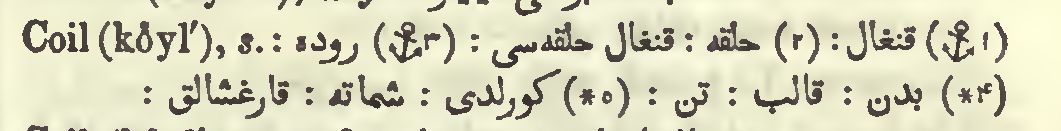 Coil (kŏyl′), s. : (⚓١) قنغال : (٢) حلقه : قنغال حلقه‌سی : (⚓٣) روده :
(*۴) بدن : قالب : تن : (*٥) كورلدی : شماته : قارغشالق :